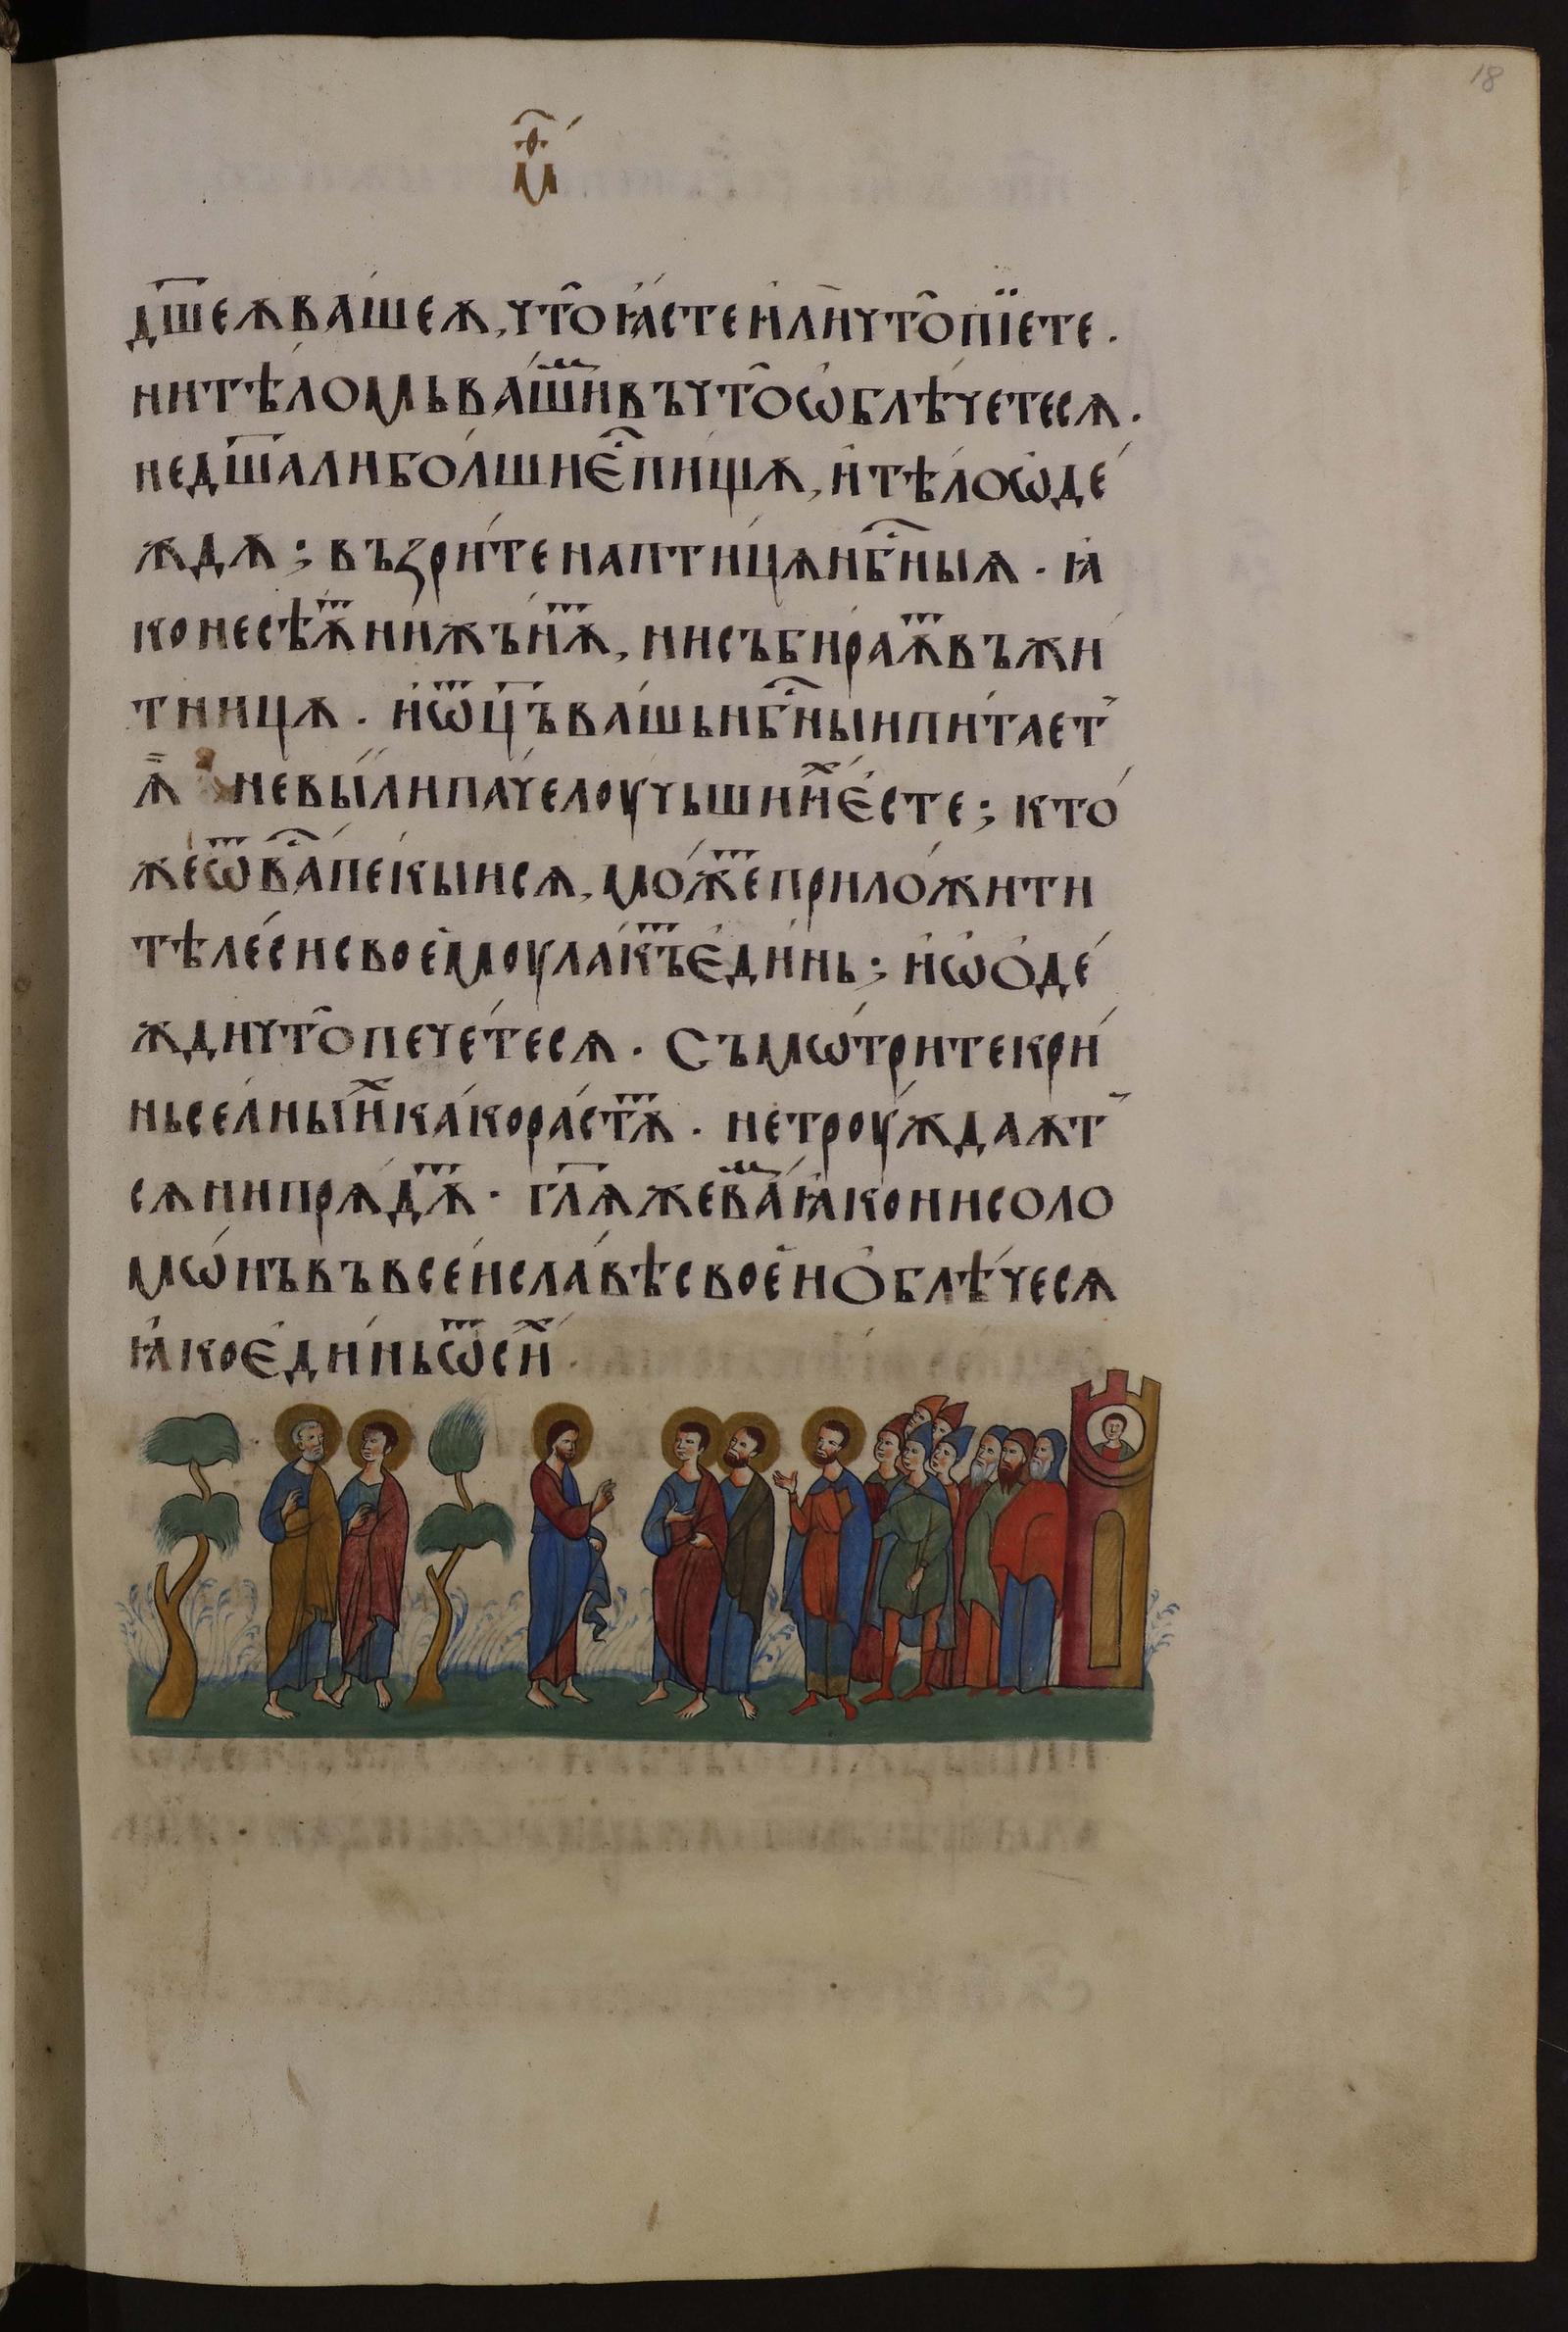 18
м҃ѳ
дш҃еѫ ва́шеѧ, что̑ ꙗ҆́сте и҆лѝ что̑ пїе́те.
ни тѣ́ломь ва́шиⷨ въ что̑ ѡ҆блѣче́тесѧ.
не дш҃а ли бо́лши є҆҃ пи́щѫ, и҆ тѣ́ло ѡ҆де́
ждѫ; въ́зри́те на пти́цѧ нб҃ныѧ. ꙗ҆́
ко не сѣ́ѫⷮ ни жъ́нѫⷮ, ни събира́ѫⷮ въ жи́
тницѧ. и҆ ѡ҃ц҃ъ ва́шь нб҃ныи пита́ет
ѧ҆̀ не вы́ ли па́че лоу́чьшиⷯи є҆́сте; кто́
же ѿ ва҃ пекы́исѧ, мо́жеⷮ приложи́ти
тѣле́си своемоу ла́къⷮ є҆ди́нь; и҆ ѡ҆ о҆де́
жди что̑ пече́тесѧ. Съмѡтри́те кри́
нь се́лныиⷯ ка́ко расⷮтѫ́. не троу́ждаѫт
сѧ ни прѧдѫ́ⷮ. гл҃ѫ же ваⷨ ꙗ҆́ко ни соло
мѡ́нъ въ всеи́ сла́вѣ свое́и о҆блѣ́чесѧ
ꙗ҆́ко є҆ди́нь ѿ сиⷯ.